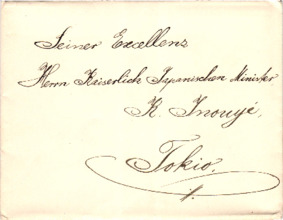 Seiner Excellenz
Herrn Kaiserlich Japanischen Minister
K. Inouyé,
Tokio.